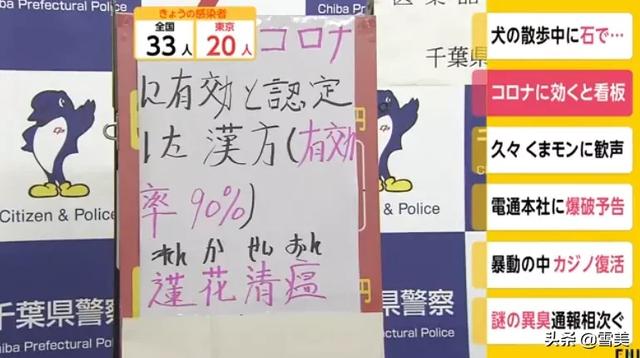 Chiba Pref
千葉県
きょうの感染者
全国
33人
東京
20人
コロナ
に有効と認定
した漢方(有効
率90%)
れん か せい おん
蓮花清瘟
Citizen & Police
千葉県警察
Chiba Prefectural Police
ba Prefectural Police
Citizen & Police
葉県警察
犬の散歩中に石で…
コロナに効くと看板
久々 くまモンに歓声
電通本社に爆破予告
暴動の中 カジノ復活
謎の異臭通報相次ぐ
头条 @雪美